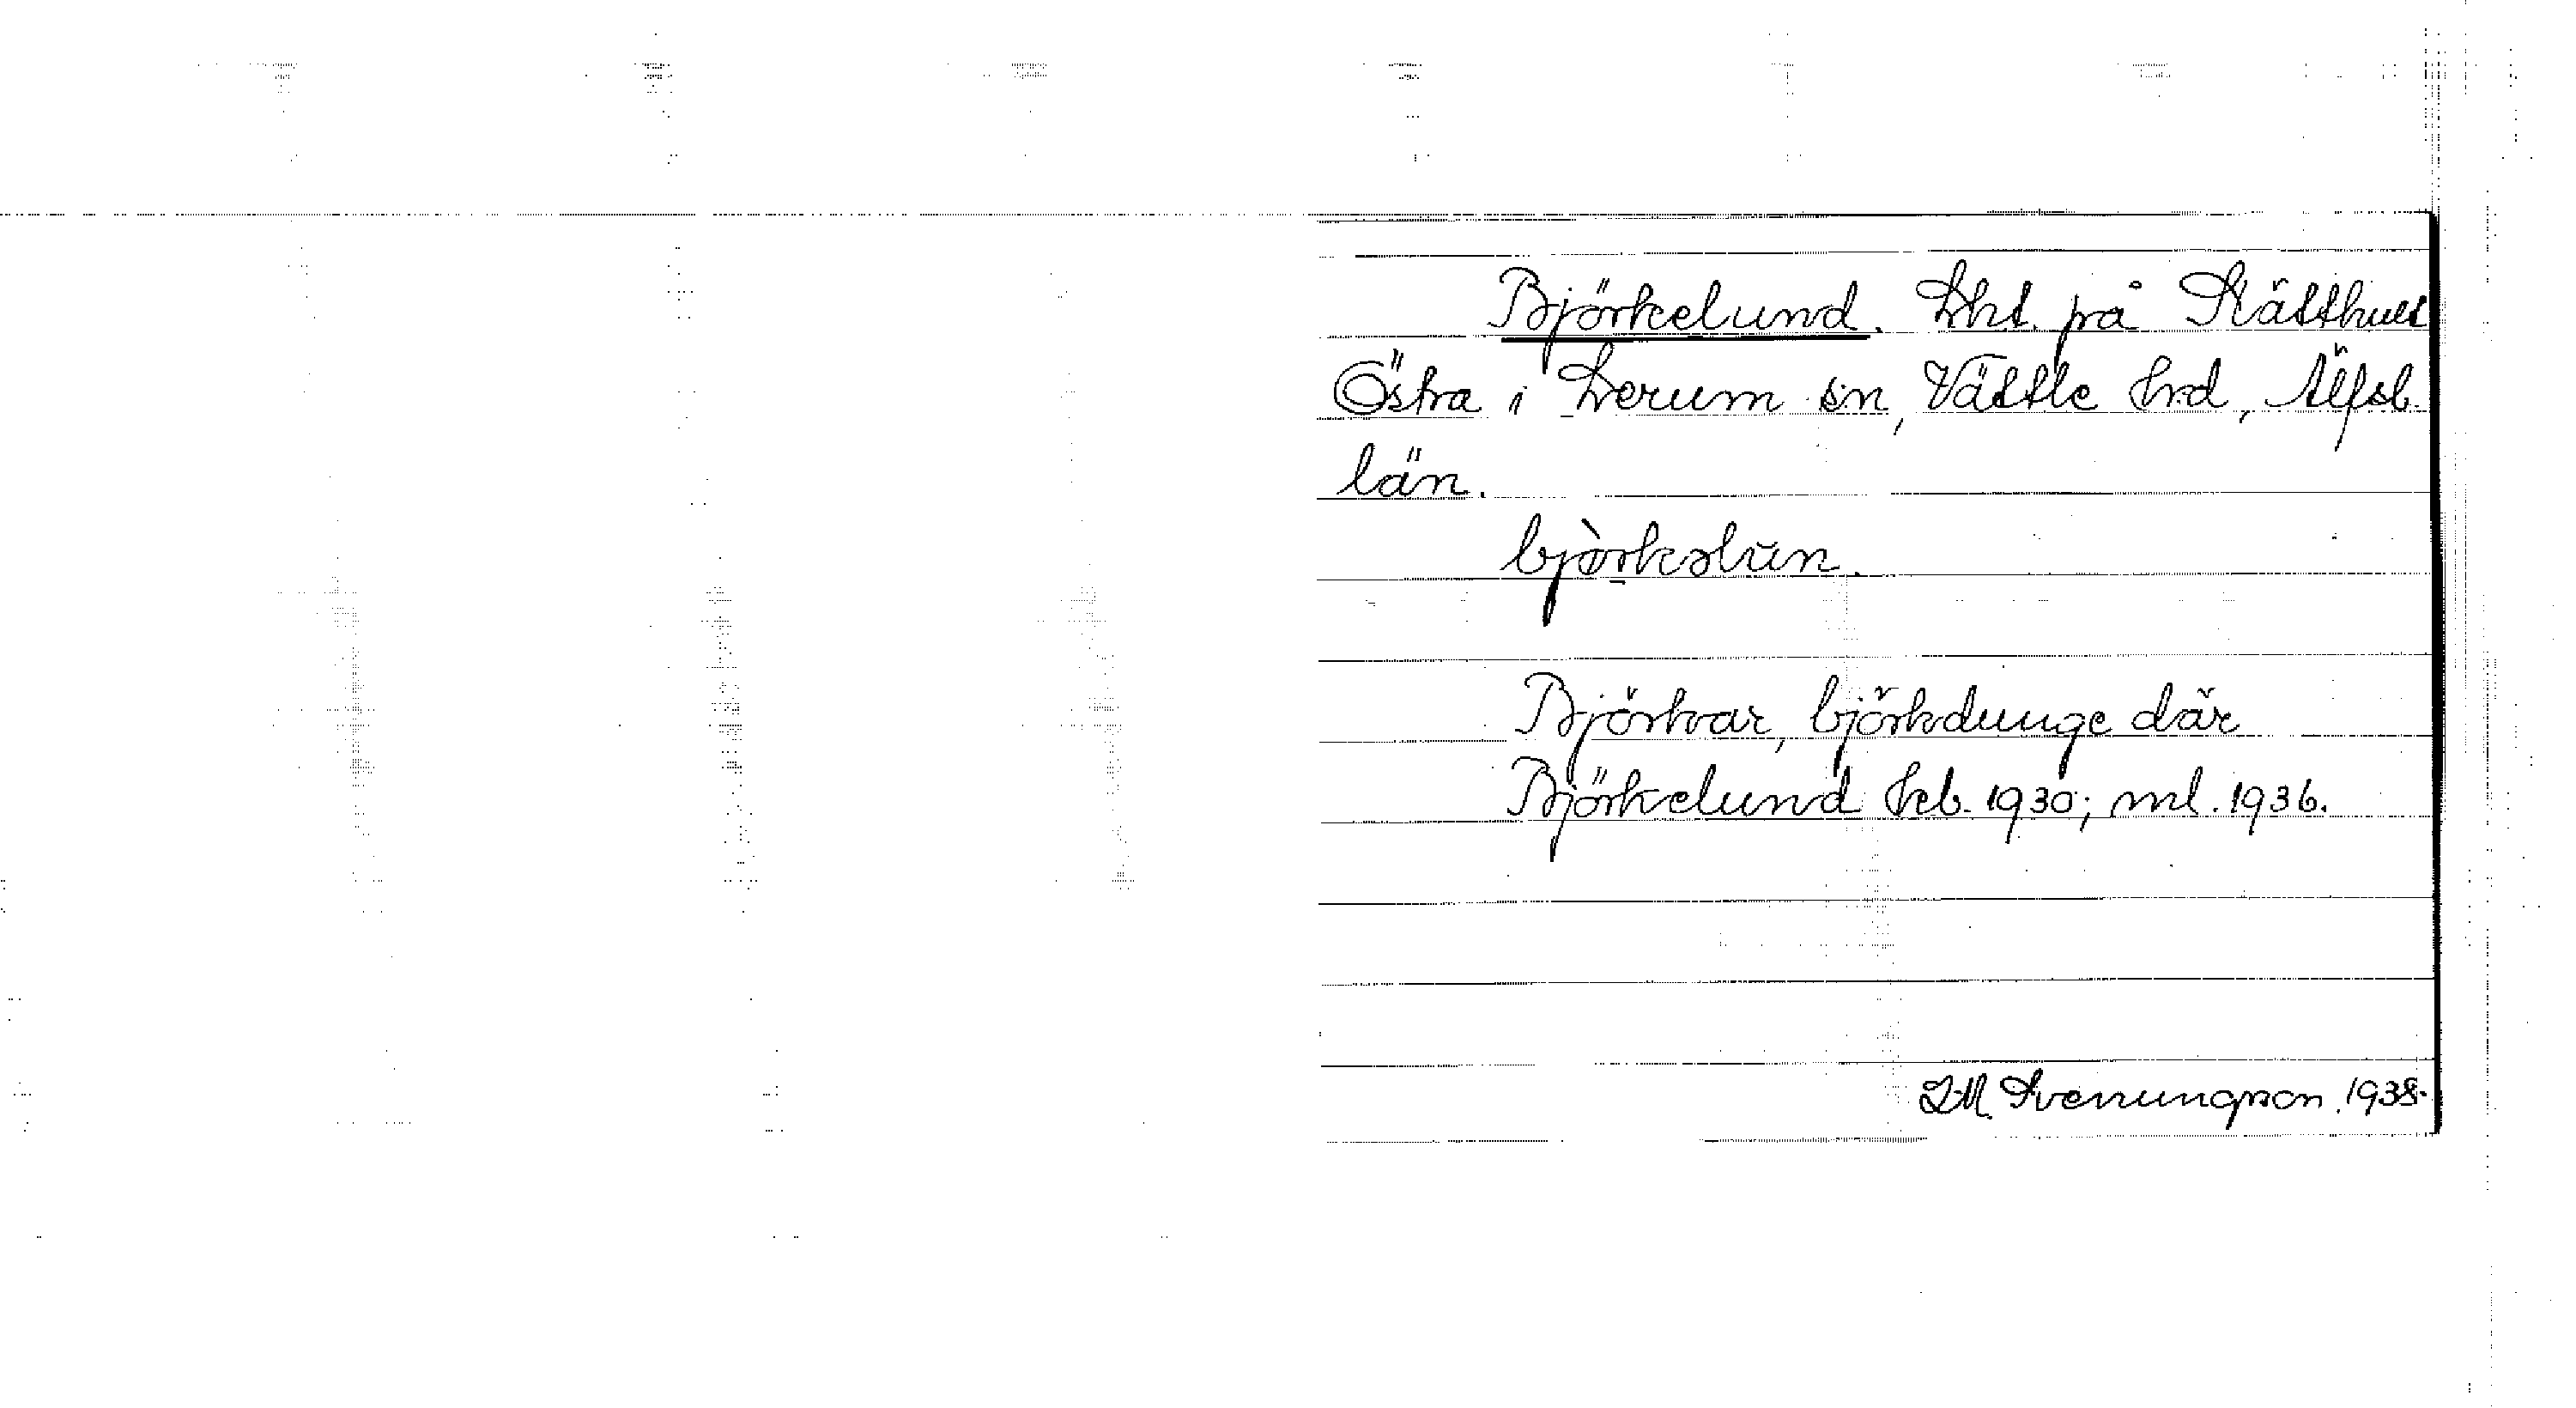 Björkelund. Lht. på Stätthult
Östra i Lerum sn, Vättle hd, Älfsb.
län.
bjòrkəlun.
Björkar, björkdunge där
Björkelund heb. 1930; ml. 1936.
I.M. Svenungsson. 1938.